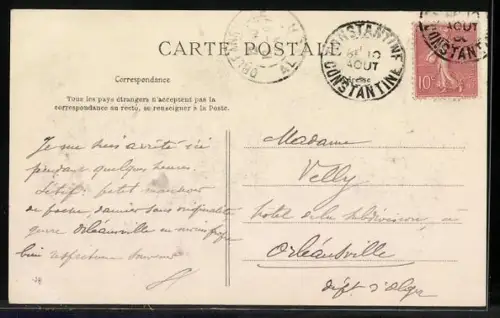 CARTE POSTALE
Correspondance
Tous les pays étrangers n'acceptent pas la
correspondance au recto, se renseigner à la Poste.
CONSTANTINE
AOUT
CONSTANTINE
10
Je me suis arrêté ici
pendant quelques heures.
Sétif: petit
de poche, damier sans originalité
genre Orléansville en
bien affectueux souvenir
Madame
Velly
hotel de la subdivision, à
Orléansville
dép't d'Alger